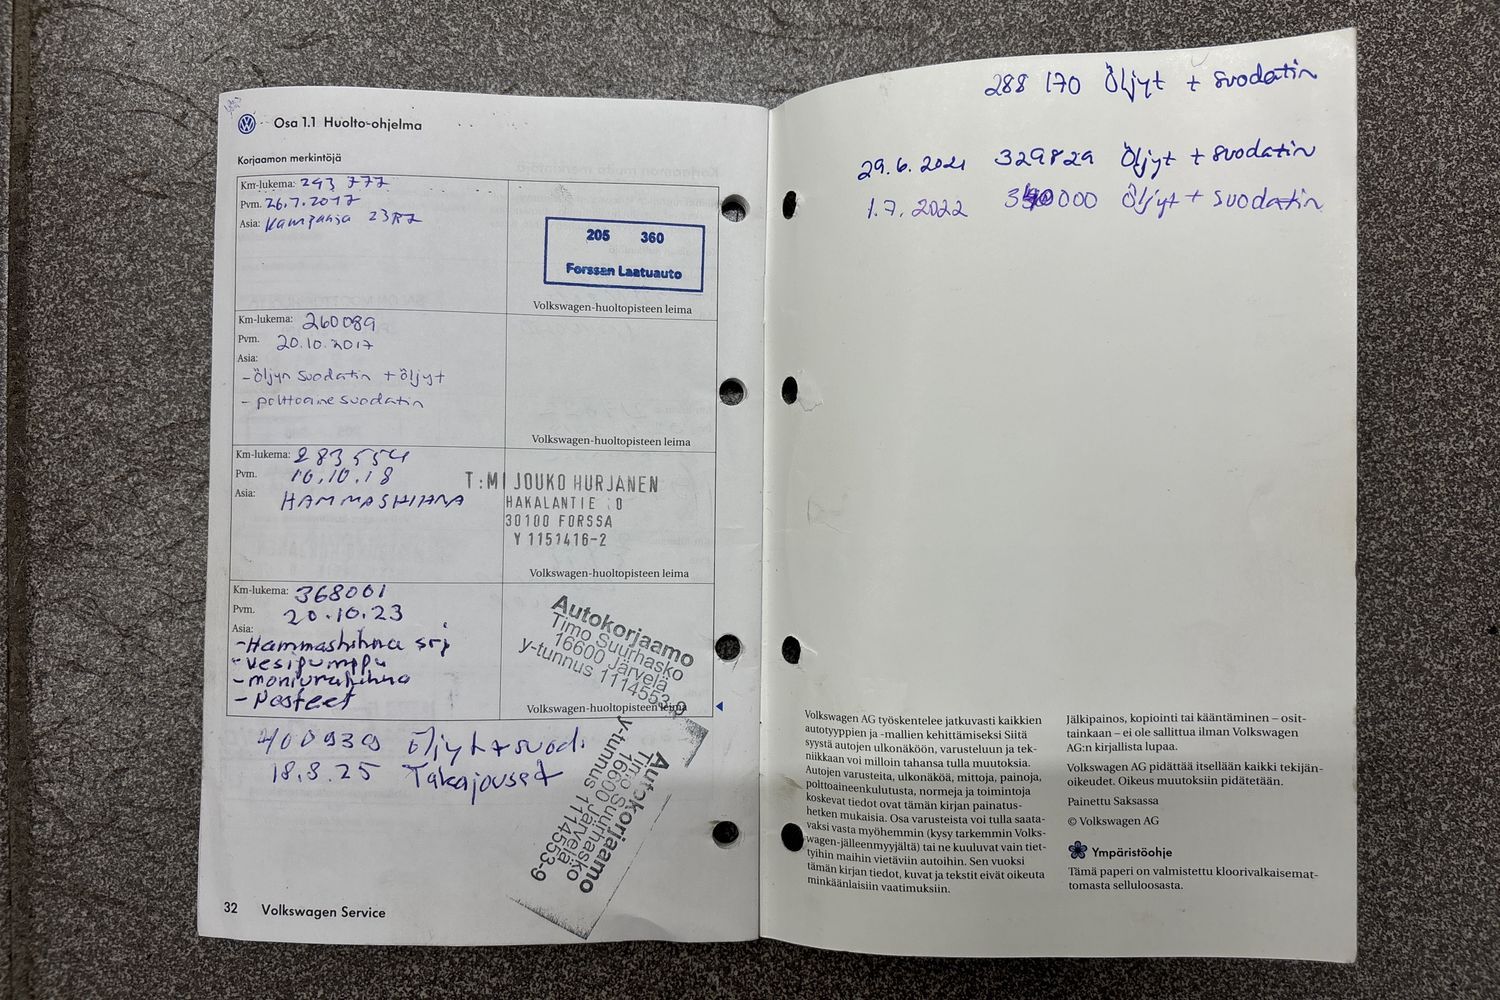 Osa 1.1 Huolto-ohjelma
Korjaamon merkintöjä
Km-lukema: 243 777
Pvm. 26.7.2017
Asia: Kampanja 23R7
205 360
Forssan Laatuauto
Volkswagen-huoltopisteen leima
Km-lukema: 260089
Pvm. 20.10.2017
Asia:
-öljyn suodatin + öljyt
- polttoainesuodatin
Volkswagen-huoltopisteen leima
Km-lukema: 283554
Pvm. 16.10.18
Asia: HAMMASHIHNA
T:MI JOUKO HURJANEN
HAKALANTIE 0
30100 FORSSA
Y 1151416-2
Volkswagen-huoltopisteen leima
Km-lukema: 368001
Pvm. 20.10.23
Asia:
-Hammashihna srj
-vesipumppu
-moniurahihna
-Nesteet
Autokorjaamo
Timo Suurhasko
16600 Järvelä
y-tunnus 1114553-9
Volkswagen-huoltopisteen leima
400939 öljyt+suod.
18.8.25 Takajouset
Autokorjaamo
Timo Suurhasko
16600 Järvelä
y-tunnus 1114553-9
32 Volkswagen Service
288 170 Öljyt + suodatin
29.6.2021 329829 Öljyt + suodatin
1.7.2022 340000 Öljyt + suodatin
Volkswagen AG työskentelee jatkuvasti kaikkien
autotyyppien ja -mallien kehittämiseksi Siitä
syystä autojen ulkonäköön, varusteluun ja tek-
niikkaan voi milloin tahansa tulla muutoksia.
Autojen varusteita, ulkonäköä, mittoja, painoja,
polttoaineenkulutusta, normeja ja toimintoja
koskevat tiedot ovat tämän kirjan painatus-
hetken mukaisia. Osa varusteista voi tulla saata-
vaksi vasta myöhemmin (kysy tarkemmin Volks-
wagen-jälleenmyyjältä) tai ne kuuluvat vain tiet-
tyihin maihin vietäviin autoihin. Sen vuoksi
tämän kirjan tiedot, kuvat ja tekstit eivät oikeuta
minkäänlaisiin vaatimuksiin.
Jälkipainos, kopiointi tai kääntäminen – osit-
tainkaan – ei ole sallittua ilman Volkswagen
AG:n kirjallista lupaa.
Volkswagen AG pidättää itsellään kaikki tekijän-
oikeudet. Oikeus muutoksiin pidätetään.
Painettu Saksassa
© Volkswagen AG
Ympäristöohje
Tämä paperi on valmistettu kloorivalkaisemat-
tomasta selluloosasta.